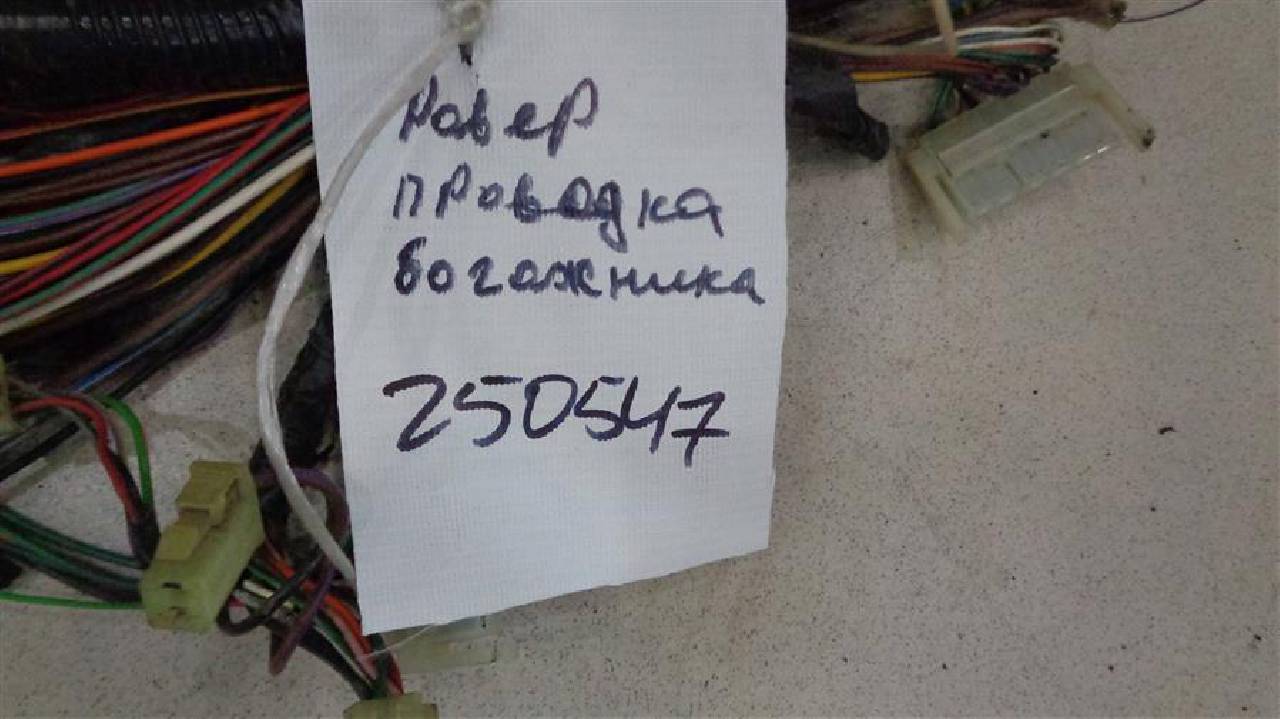 Ровер
проводка
богажника
250547